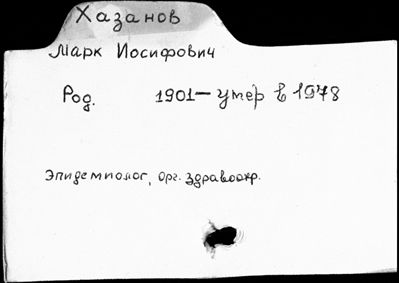 Хазанов
Марк Иосифович
Род. 1901 — умер в 1978
Эпидемиолог, орг. здравоохр.